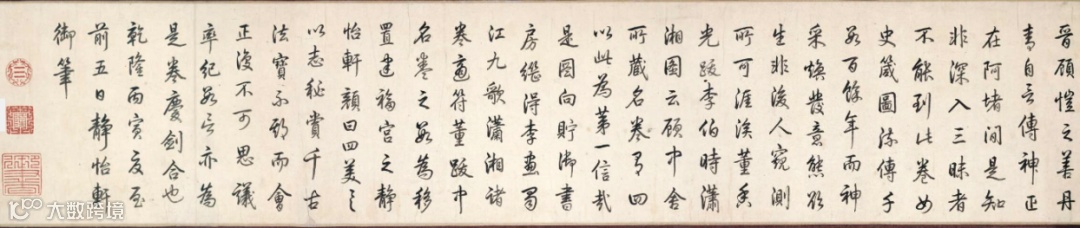 晉顧愷之善丹
青自言傳神正
在阿堵間是知
非深入三昧者
不能到此卷女
史箴圖流傳千
數百餘年而神
采煥發意態欲
生非後人窺測
所可涯涘董香
光跋李伯時瀟
湘圖云顧中舍
所藏名卷有四
以此為第一信哉
是圖向貯御書
房繼得李畫蜀
江九歌瀟湘諸
卷適符董跋中
名卷之數為移
置建福宮之靜
怡軒顏曰四美具
以志秘賞千古
法寶不期而會
正復不可思議
率紀數言亦為
是卷慶劍合也
乾隆丙寅夏至
前五日靜怡軒
御筆
大数跨境